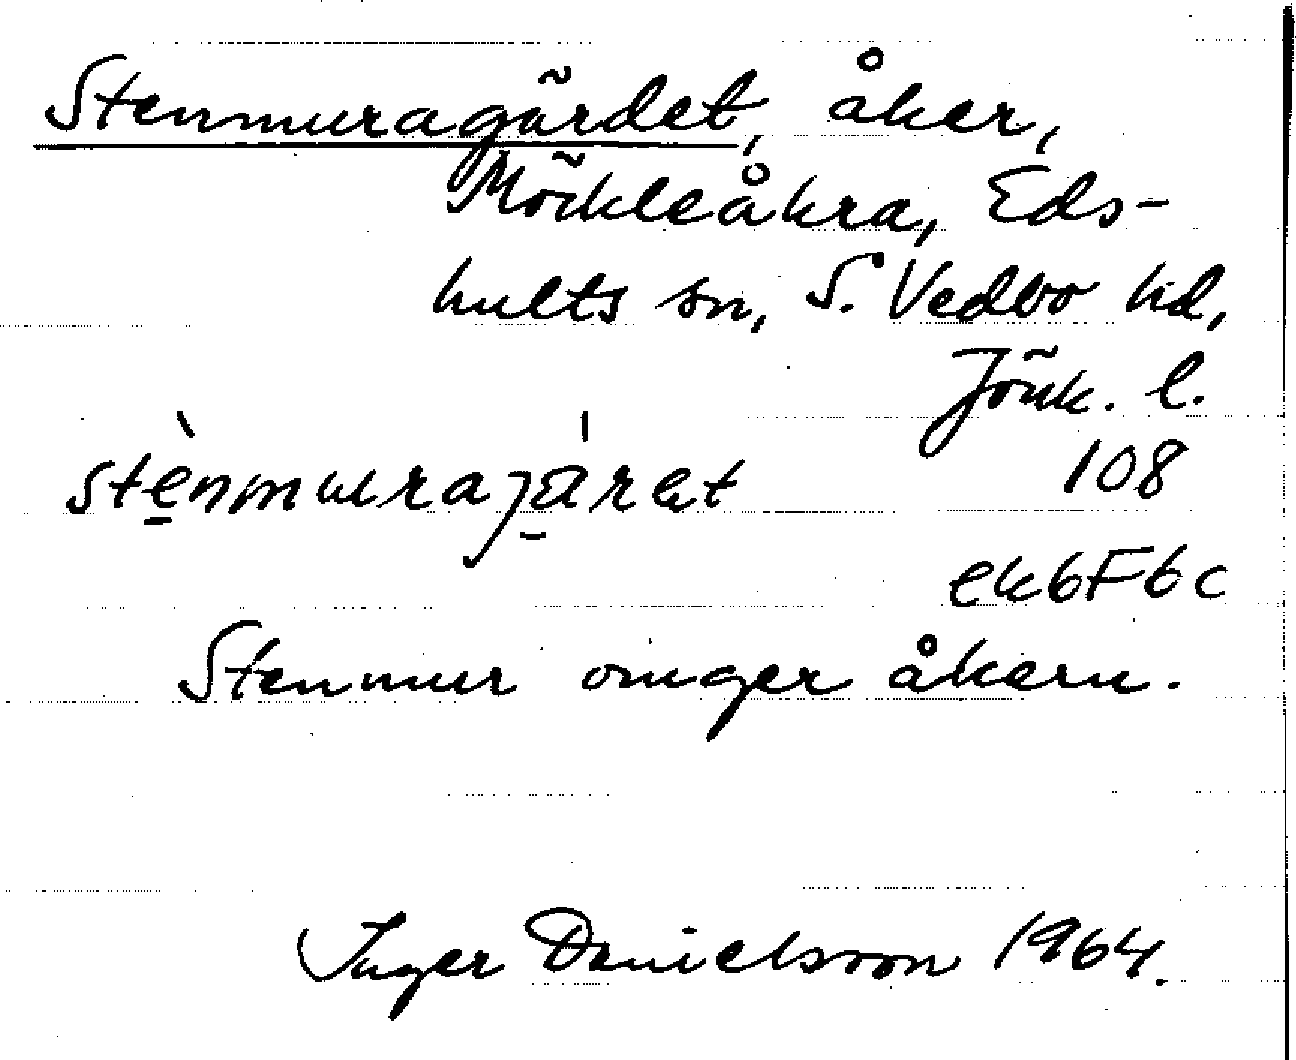 Stenmuragärdet, åker,
Möckleåkra, Eds-
hults sn, S. Vedbo hd,
Jönk. l.
108
ek6F6c
Stenmur omger åkern.
Inger Danielsson 1964.